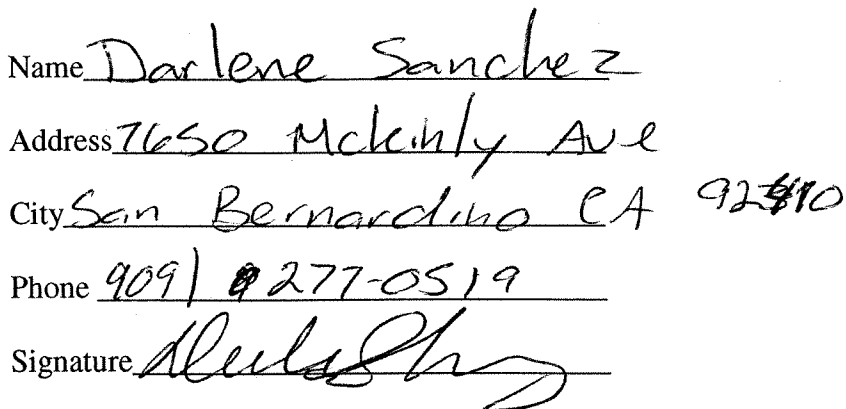 Name Darlene Sanchez
Address 7650 Mckinly Ave
City San Bernardino CA 92410
Phone 909) 277-0519
Signature